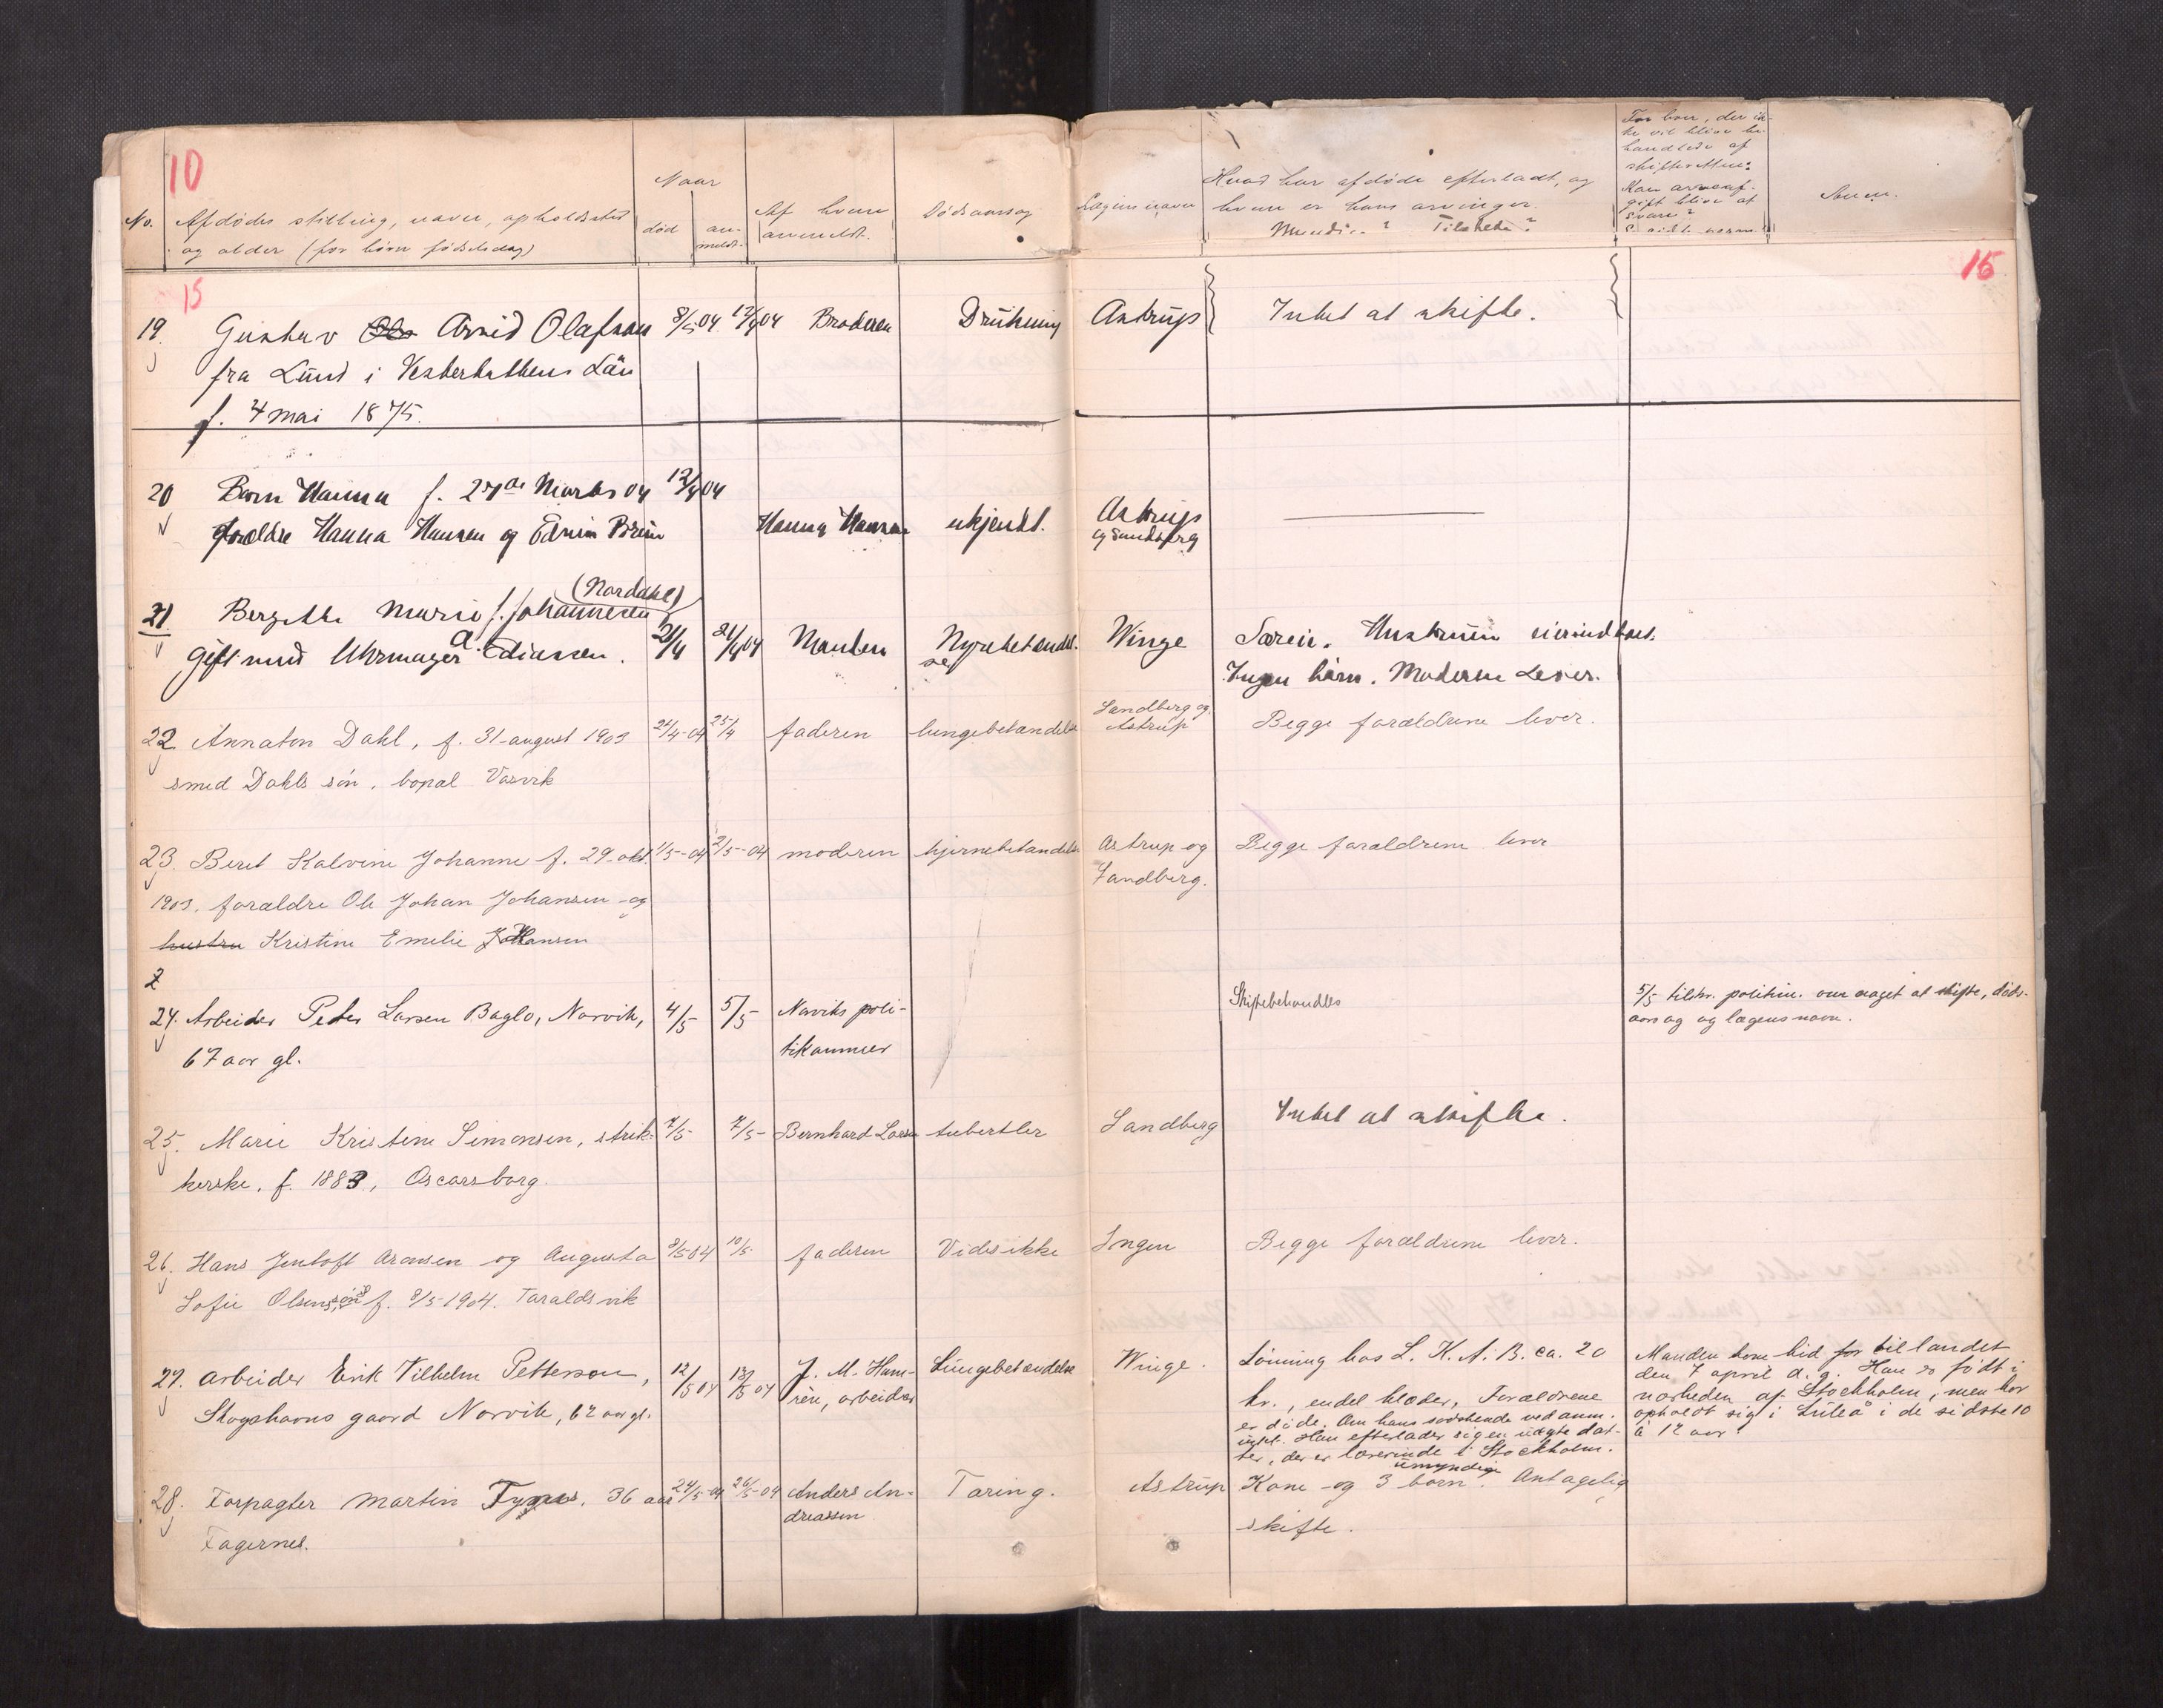 10
No.
Afdødes stilling, navn, opholdssted
og alder (for børn fødselsdag)
Naar
død
an-
meldt.
Af hvem
anmeldt.
Dødsaarsag
Lægens navn
Hvad har afdøde efterladt, og
hvem er hans arvinger.
Myndige? Tilstede?
For boer, der ik-
ke vil blive be-
handlede af
skifteretten:
Kan arveaf-
gift blive at
svare?
Anm.
15
16
19. Gustav Arvid Olafson 8/5 04 12/4 04 Broderen Drukning Astrup Intet at skifte.
fra Lund i Vesterbottens Län
f. 4 mai 1875.
20 Barn Hanna f. 27de Marts 04 12/4 04
forældre Hanna Hansen og Edvin Brun Hanna Hansen ukjendt. Astrup
og Sandberg
(Nordahl)
21. Bergitte Marie f. Johannesen
gift med Uhrmager A. Ediassen. 21/4 21/4 04 Manden Nyrebetændel-
se Winge Særeie. Hustruen eier indboet.
Ingen börn. Moderen Lever.
22 Annaton Dahl, f. 31-august 1903 24/4-04 25/4 faderen lungebetændelse Sandberg og
Astrup Begge forældrene lever.
smed Dahls søn, bopæl Vasvik
23. Beret Kalvine Johanne f. 29-okt. 1/5-04 2/5-04 moderen hjernebetændelse Astrup og
Sandberg. Begge forældrene lever
1903. forældre Ole Johan Johansen og
hustru Kristine Emelie Johansen
2
24. Arbeider Peder Larsen Baglo, Narvik, 4/5 5/5 Narviks poli-
tikammer Skiftebehandles 5/5 tilskr. politim. om noget at skifte, døds-
aarsag og lægens navn.
67 aar gl.
25. Marie Kristine Simonsen, strik- 7/5 7/5- Bernhard Larsen tuberkler Sandberg Intet at skifte.
kerske. f. 1883, Oscarsborg.
26. Hans Jentoft Aronsen og Augusta 8/5 04 10/5 faderen Vides ikke Ingen Begge forældrene lever.
Sofie Olsens søn f. 8/5 1904. Taraldsvik
27. Arbeider Erik Vilhelm Petterson, 12/5 04 13/5 04 J. M. Ham-
rén, arbeider Lungebetændelse Winge. Lönning hos L. K. A. B. ca. 20
kr., endel klæder, Forældrene
er døde. Om hans sødskende ved anm.
intet. Han efterlader sig en uægte dat-
ter, der er lærerinde i Stockholm.
Manden kom hid for til landet
den 7 april d. g. Han er født i
nærheden af Stockholm, men har
opholdt sig i Luleå i de sidste 10
à 12 aar.
Skogshorns gaard Narvik, 62 aar gl.
28. Forpagter Martin Tynes, 36 aar 24/5-04 26/5-04 Anders An-
dreassen Tæring. Astrup Kone og 3 umyndige børn. Antagelig
skifte.
Fagernes.